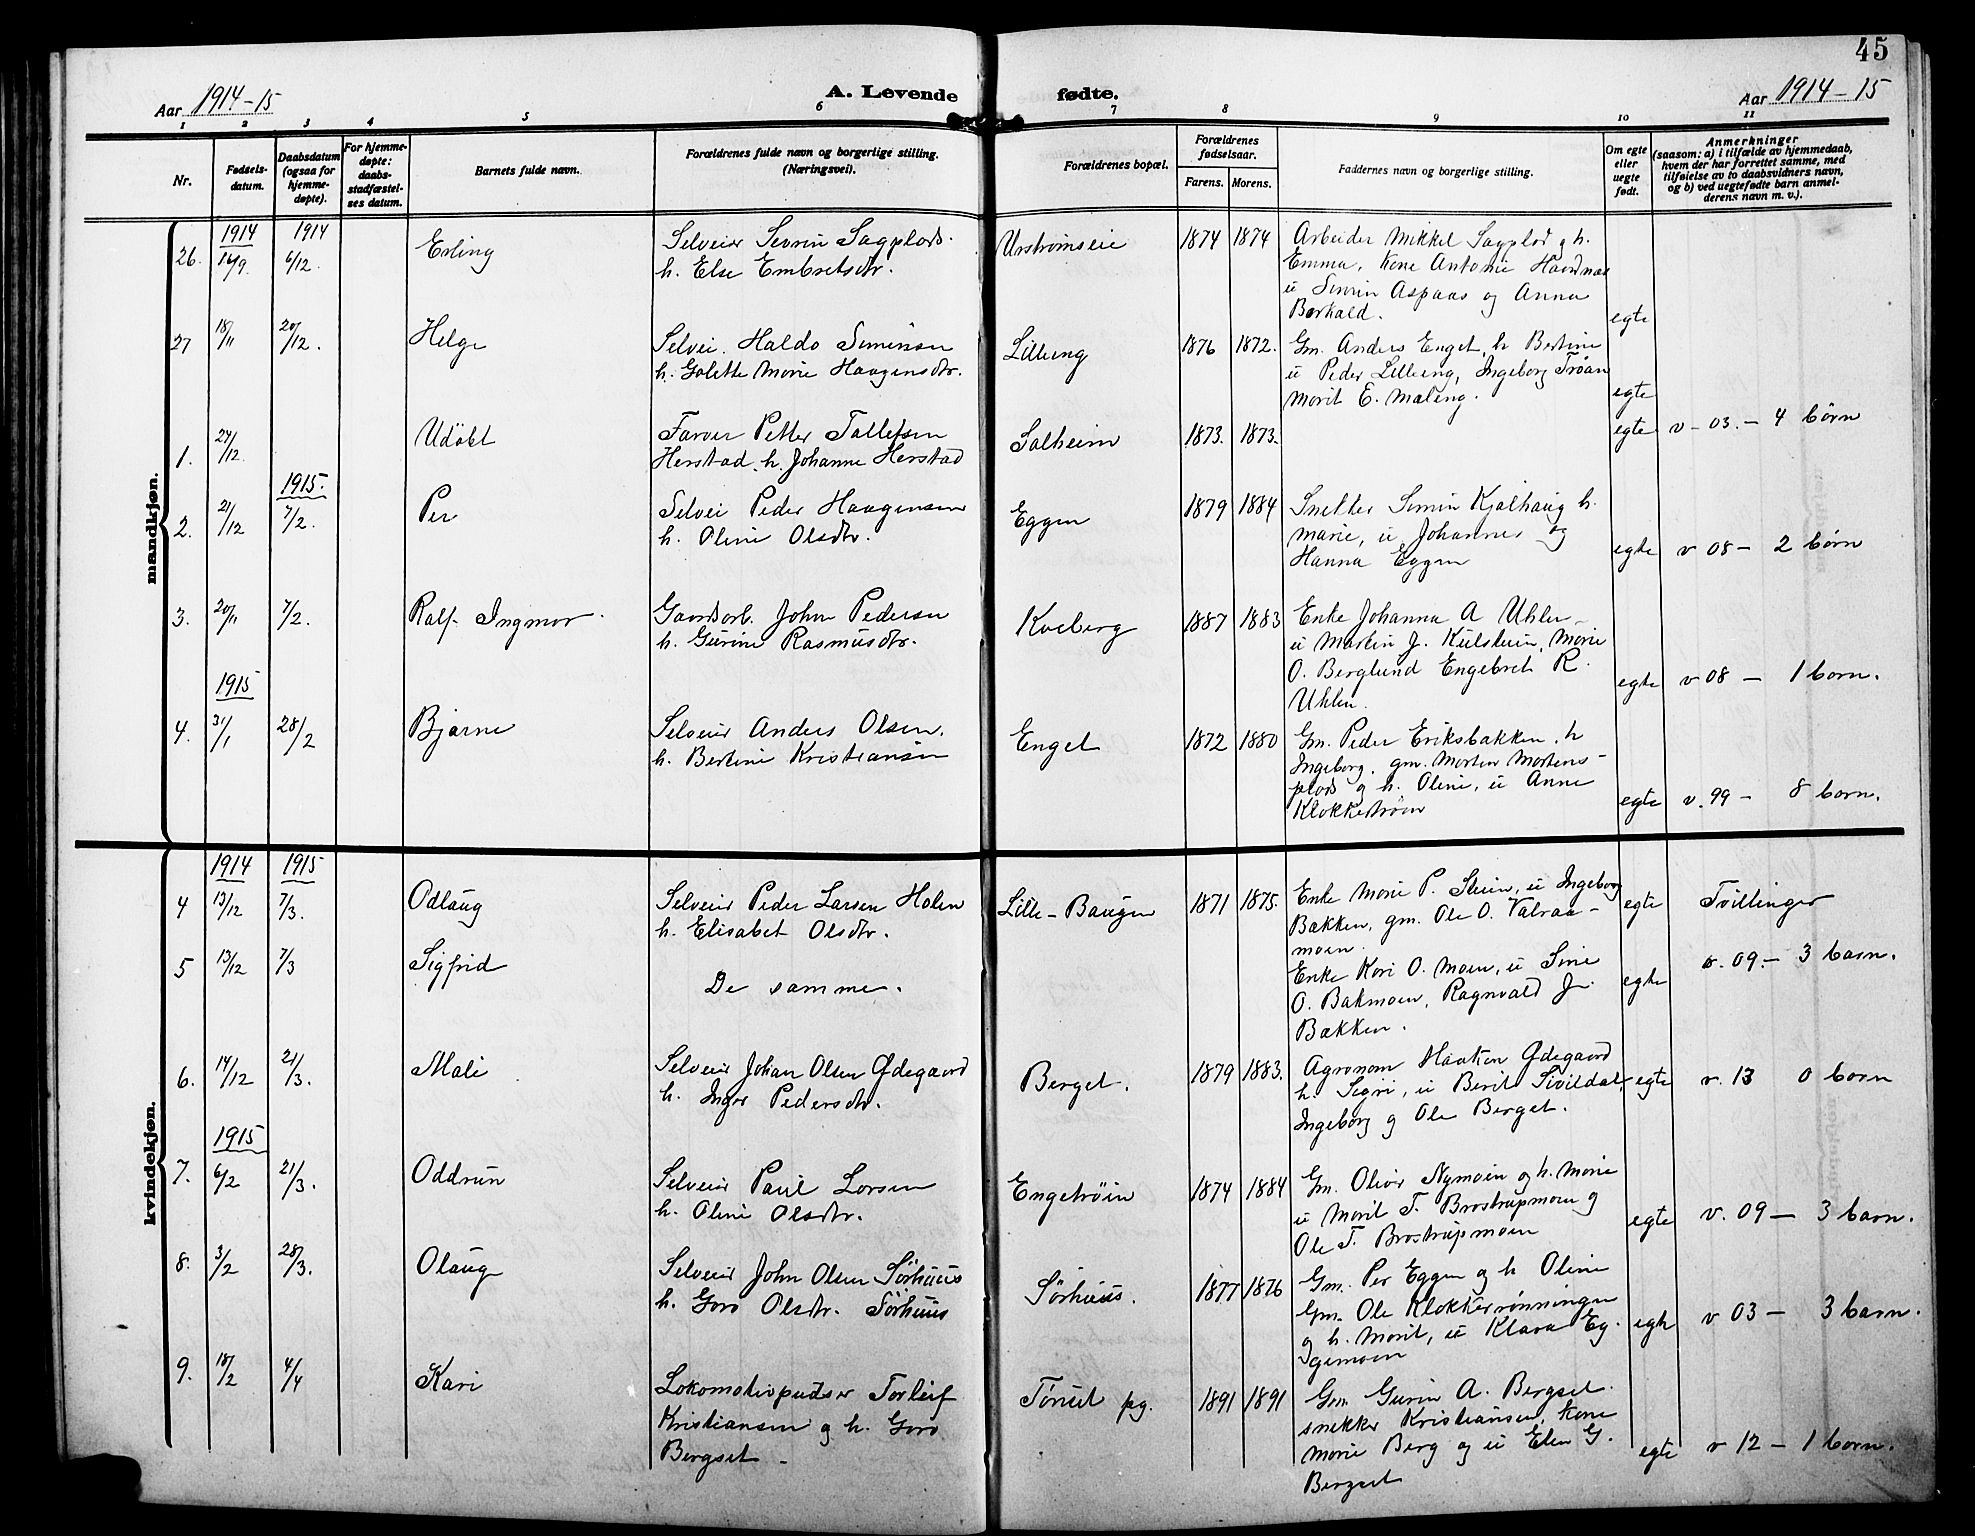 45
Aar 1914-15
A. Levende fødte.
Aar 1914-15
1 2 3 4 5 6 7 8 9 10 11
Nr.
Fødsels-
datum.
Daabsdatum
(ogsaa for
hjemme-
døpte).
For hjemme-
døpte:
daabs-
stadfæstel-
ses datum.
Barnets fulde navn.
Forældrenes fulde navn og borgerlige stilling.
(Næringsvei).
Forældrenes bopæl.
Forældrenes
fødselsaar.
Farens. Morens.
Faddernes navn og borgerlige stilling.
Om egte
eller
uegte
født.
Anmerkninger
(saasom: a) i tilfælde av hjemmedaab,
hvem der har forrettet samme, med
tilføielse av to daabsvidners navn,
og b) ved uegtefødte barn anmel-
derens navn m. v.).
mandkjøn.
1914 1914
26. 16/9. 6/12. Erling
Selveier Sevrin Sagplads.
h. Else Embretsdtr.
Urstrømseie 1874 1874
Arbeider Mikkel Sagplad g h.
Emma, Kone Antonie Haardnas
u Simin Aspaas og Anna
Borkald.
egte
27 18/11 20/12. Helge
Selvei. Haldo Simensen
h. Golette Marie Haagensdtr.
Lilleeng 1876 1872.
Gm. Anders Enget, h Bertine
u Peder Lilleeng, Ingeborg Trøan
Marit E. Maleng.
egte
1. 24/12. Udøbt
Farver Petter Tollefsen
Herstad. h. Johanne Herstad
Solheim 1873. 1873.
egte v - 03. - 4 børn
1915.
2. 21/12 7/2. Per
Selvei Peder Haagensen
h. Oline Olsdtr.
Eggen 1879 1884
Snekker Simin Kjølhaug h.
Marie, u Johannes og
Hanna Eggen
egte v 08 - 2 børn
3. 20/11 7/2. Ralf Ingmar.
Gaardarb. John Pedersen
h. Gurine Rasmusdtr.
Kveberg 1887 1883
Enke Johanna A Uhlen
u Martin J. Kulstuin, Marie
O. Berglund Engebret R.
Uhlen.
egte v 08 - 1 barn.
1915
4. 31/1 28/2 Bjarne
Selveier Anders Olsen.
h. Bertine Kristiansen
Enget 1872 1880
Gm. Peder Eriksbakken. h
Ingeborg. gm. Morten Mortens-
plads og h. Oline, u Anne
Klokkertrøen
egte v. 99 - 8 barn.
kvindekjøn.
1914 1915
4 13/12 7/3. Odlaug
Selveier Peder Larsen Holen
h. Elisabet Olsdtr.
Lille-Baugen 1871 1875.
Enke Marie P. Stuin, u Ingeborg
Bakken, gm. Ole O. Valraa-
moen.
egte Tvillinger
5 13/12 7/3 Sigfrid
De samme.
Enke Kari O. Moen, u Sine
O. Bakmoen, Ragnvald J.
Bakken.
egte v. 09. - 3 barn.
6. 14/12 21/3. Mali
Selveier Johan Olsen Ødegaard
h. Inger Pedersdtr.
Berget. 1879 1883.
Agronom Haakon Ødegaard
h. Sigri, u Berit Sivildal,
Ingeborg g Ole Berget.
egte v. 13 0 barn
1915
7. 6/2 21/3. Oddrun
Selveier Paul Larsen
h. Oline Olsdtr.
Engetrøin 1874 1884
Gm. Oliver Nymoen og h. Marie
u Marit T. Brostrupmoen g
Ole T. Brostrupmoen
egte v. 09 - 3 barn.
8. 3/2 28/3. Olaug
Selveier John Olsen Sørhuus
h. Goro Olsdtr. Sørhuus
Sørhuus. 1877 1876
Gm. Per Eggen og h Oline
Gm. Ole Klokkerrønningen
g h. Marit, u Klara Eg.
Igemoen
egte v 03 - 3 barn.
9. 18/2 4/4 Kari
Lokomotivpudser Torleif
Kristiansen g h. Goro
Bergset
Tønset pg. 1891 1891
Gm. Gurin A. Bergset.
snekker Kristiansen, kone
Marie Berg og u Elen G.
Bergset
egte v 12 - 1 barn.